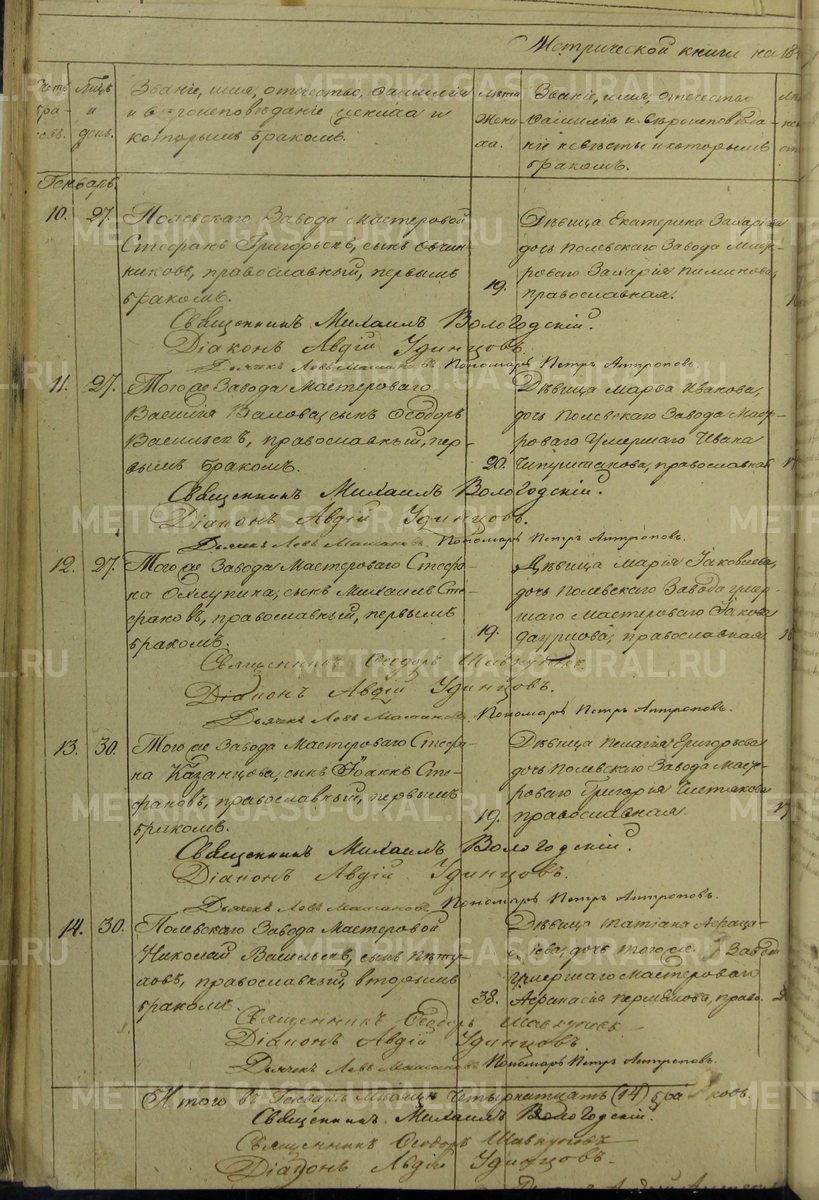 Метрической книги на 18
Счетъ бра-ковъ.
Мѣсяцъ и день.
Званіе, имя, отчество, фамилія
и вѣроисповѣданіе жениха и
которымъ бракомъ.
Лѣта
Жени-
ха.
Званіе, имя, отчество
фамилія и вѣроисповѣда-
ніе невѣсты и которымъ
бракомъ.
Генварь.
10. 27. Полевскаго Завода мастеровой
Стефанъ Григорьевъ, сынъ Овчин-
никовъ, православный, первымъ
бракомъ.
19.
Дѣвица Екатерина Захаріева
дочь Полевскаго Завода Масте-
роваго Захарія Пиминова,
православная.
Священникъ Михаилъ Вологодскій.
Діаконъ Авдій Удинцовъ.
Дьячекъ Левъ Пономарь Петръ Антроповъ.
11. 27. Того же Завода Мастероваго
Василія сынъ Ѳеодоръ
Васильевъ, православный, пер-
вымъ бракомъ.
20.
Дѣвица Марѳа Иванова,
дочь Полевскаго Завода Масте-
роваго Умершаго Ивана
православная
Священникъ Михаилъ Вологодскій.
Діаконъ Авдій Удинцовъ.
Дьячекъ Левъ Пономарь Петръ Антроповъ.
12. 27. Того же Завода Мастероваго Стефа-
на сынъ Михаилъ Сте-
фановъ, православный, первымъ
бракомъ.
19.
Дѣвица Марія Іаковлева,
дочь Полевскаго Завода умер-
шаго Мастероваго Іакова
православная
Священникъ Ѳеодоръ Шавкуновъ
Діаконъ Авдій Удинцовъ.
Дьячекъ Левъ Пономарь Петръ Антроповъ.
13. 30. Того же Завода Мастероваго Стефа-
на Казанцова, сынъ Іоаннъ Сте-
фановъ, православный, первымъ
бракомъ.
19.
Дѣвица Пелагія Григорьева
дочь Полевскаго Завода Масте-
роваго Григорія Шестакова
православная
Священникъ Михаилъ Вологодскій.
Діаконъ Авдій Удинцовъ.
Дьячекъ Левъ Пономарь Петръ Антроповъ.
14. 30. Полевскаго Завода Мастеровой
Николай Васильевъ, сынъ Пѣту-
ховъ, православный, вторымъ
бракомъ.
38.
Дѣвица Татіана Аѳана-
сіева, дочь того же Завода
умершаго Мастероваго
Аѳанасія Пермякова, право-
Священникъ Ѳеодоръ Шавкуновъ
Діаконъ Авдій Удинцовъ.
Дьячекъ Левъ Пономарь Петръ Антроповъ.
Итого въ Генварѣ Мѣсяцѣ Четырнатцать (14) браковъ.
Священникъ Михаилъ Вологодскій.
Священникъ Ѳеодоръ Шавкуновъ
Діаконъ Авдій Удинцовъ.
METRIKI.GASO-URAL.RU